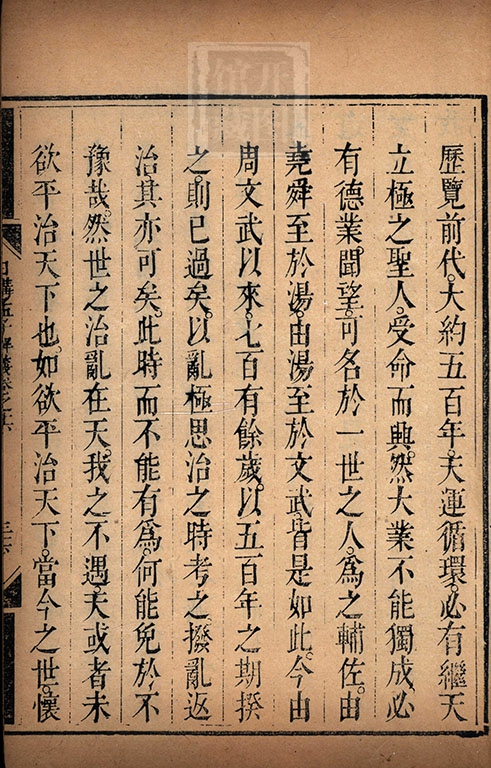 歷覽前代。大約五百年。天運循環。必有繼天
立極之聖人。受命而興。然大業不能獨成。必
有德業聞望。可名於一世之人。為之輔佐。由
堯舜至於湯。由湯至於文武。皆是如此。今由
周文武以來。七百有餘歲。以五百年之期揆
之。則已過矣。以亂極思治之時考之。撥亂返
治。其亦可矣。此時而不能有爲。何能免於不
豫哉。然世之治亂在天。我之不遇。天或者未
欲平治天下也。如欲平治天下。當今之世。懷
日講孟子解義卷之十六